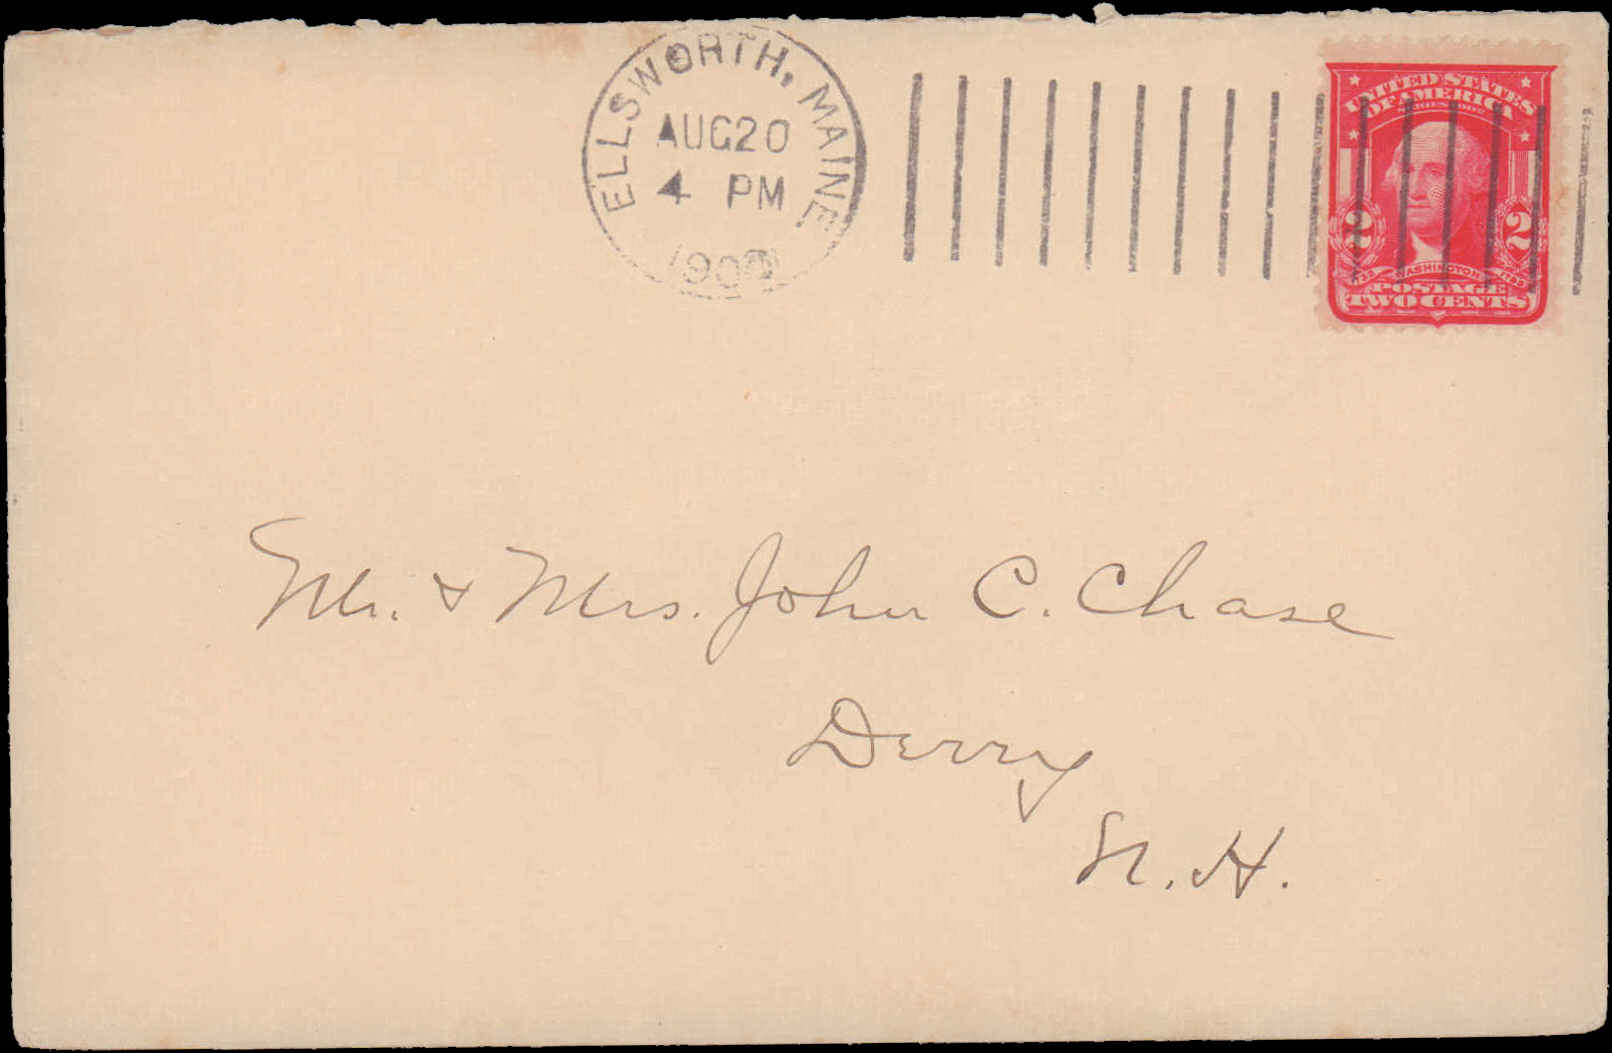 ELLSWORTH, MAINE
AUG 20
4 PM
UNITED STATES
OF AMERICA
2 2
WASHINGTON
POSTAGE
TWO CENTS
Mr. & Mrs. John C. Chase
Derry
N. H.